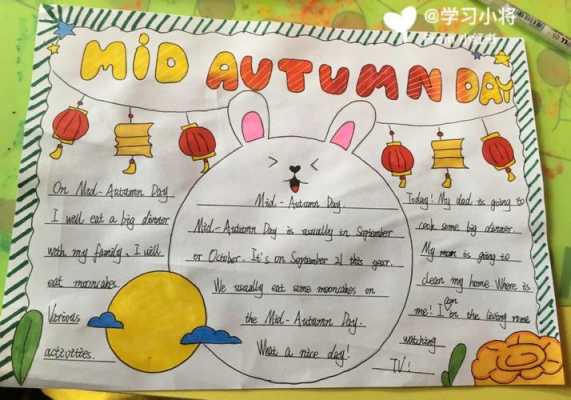 @学习小将
MiD AUTUMN DAY
On Mid-Autumn Day
I well eat a big dinner
with my family. I will
eat mooncakes.
Various
activities.
Mid-Autumn Day
Mid-Autumn Day is usually in September
or October. It's on September 21 this year.
We usually eat some mooncakes on
the Mid-Autumn Day.
What a nice day!
Today! My dad is going to
cook some big dinner.
My mom is going to
clean my home Where is
me! I am in the living
watching
TV!